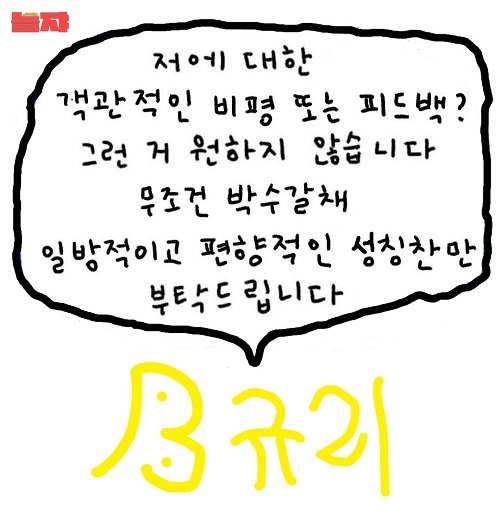 놀쟈
저에 대한
객관적인 비평 또는 피드백?
그런 거 원하지 않습니다
무조건 박수갈채
일방적이고 편향적인 성칭찬만
부탁드립니다
규리